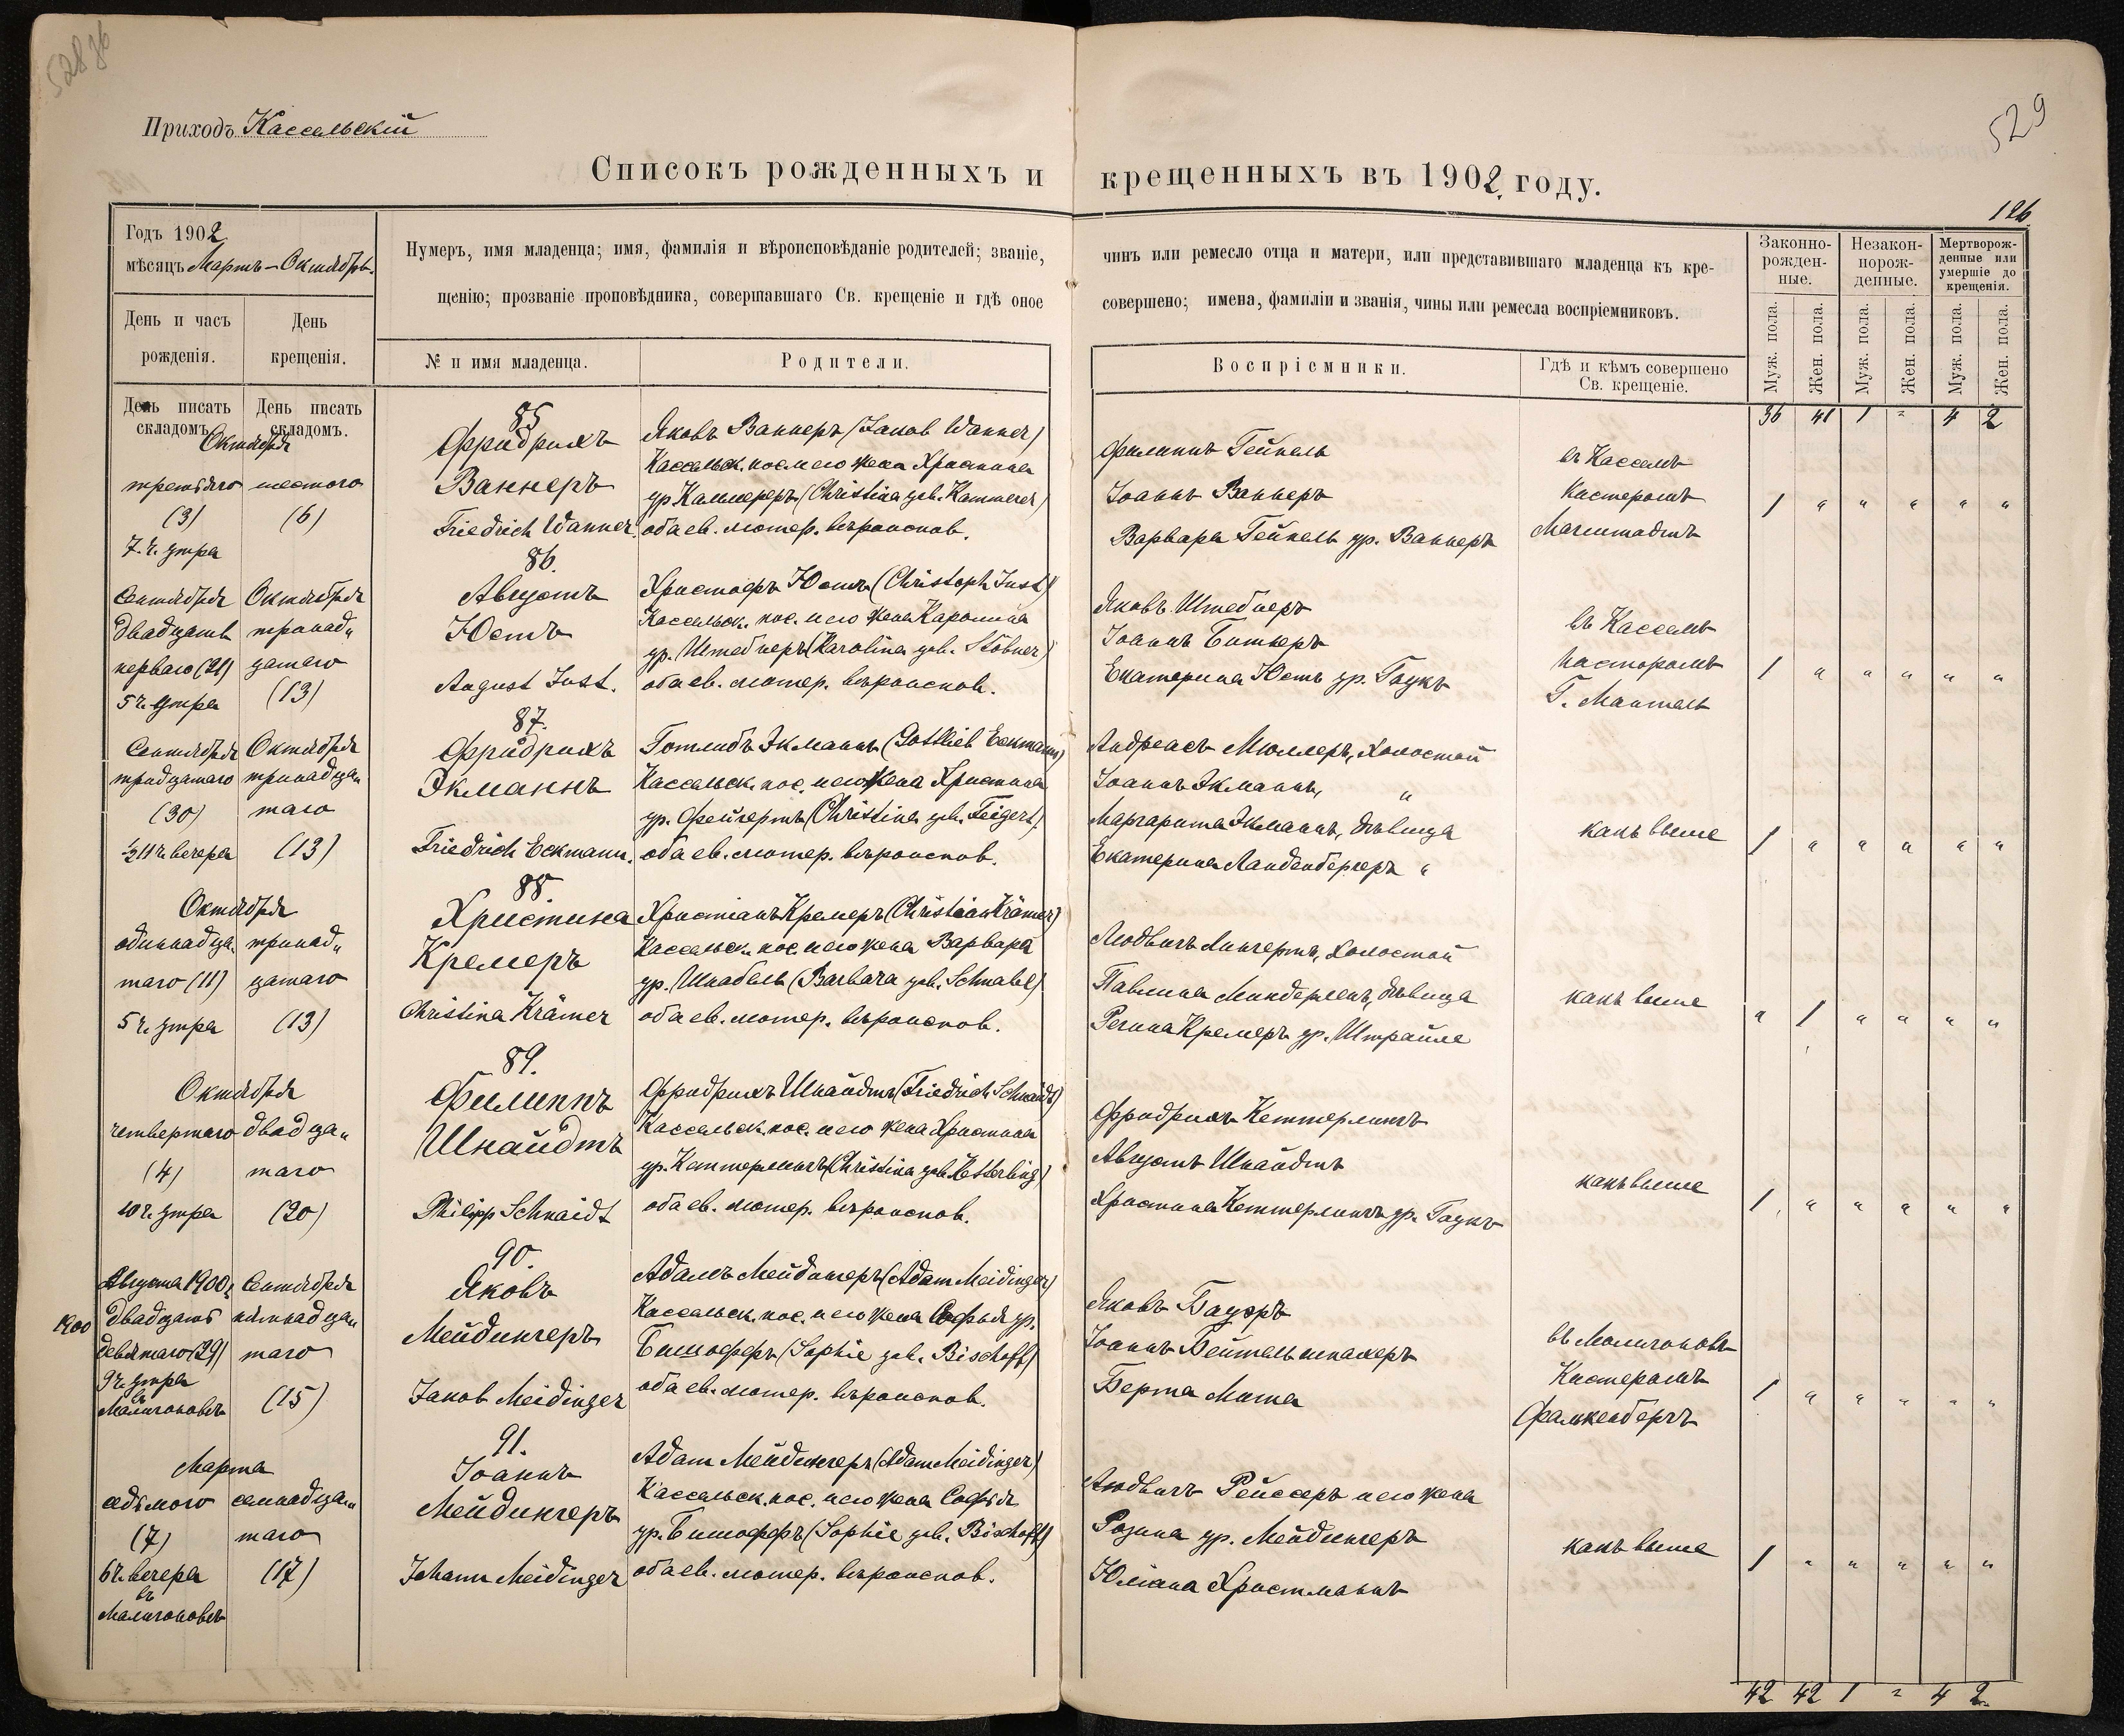 528 об
529
Приходъ Кассельскій
Списокъ рожденныхъ и крещенныхъ въ 1902 году.
126.
Годъ 1902
мѣсяцъ Мартъ – Октябрь.
День и часъ рожденія.
День крещенія.
Нумеръ, имя младенца; имя, фамилія и вѣроисповѣданіе родителей; званіе, чинъ или ремесло отца и матери, или представившаго младенца къ кре-
щенію; прозваніе проповѣдника, совершавшаго Св. крещеніе и гдѣ оное совершено; имена, фамиліи и званія, чины или ремесла воспріемниковъ.
№ и имя младенца.
Родители.
Воспріемники.
Гдѣ и кѣмъ совершено
Св. крещеніе.
Законно-
рожден-
ные.
Незакон-
норож-
денные.
Мертворож-
денные или
умершіе до
крещенія.
Муж. пола.
Жен. пола.
Муж. пола.
Жен. пола.
Муж. пола.
Жен. пола.
День писать
складомъ.
День писать
складомъ.
36 41 1 = 4 2
Октября
третьяго
(3)
7. ч. утра
шестого
(6)
85
Фридрихъ
Ваннеръ
Friedrich Wanner.
Яковъ Ваннеръ (Jakob Wanner)
Кассельск. пос. и его жена Христина
ур. Каммереръ (Christina geb. Kammerer)
оба ев. лютер. вѣроиспов.
Филиппъ Гейнель
Іоаннъ Ваннеръ
Варвара Гейнель ур. Ваннеръ
въ Касселѣ
Кистеромъ
1 " " " " "
Сентября
двадцать
перваго (21)
5 ч. утра
Октября
тринад„
цатаго
(13)
86.
Августъ
Юстъ
August Just.
Христофъ Юстъ (Christoph Just)
Кассельск. пос. и его жена Каролина
ур. Штебнеръ (Karolina geb. Stöbner)
оба ев. лютер. вѣроиспов.
Яковъ Штебнеръ
Іоаннъ Битнеръ
Екатерина Юстъ ур. Гаукъ
въ Касселѣ
Пасторомъ
1 " " " " "
Сентября
тридцатаго
(30)
½ 11 ч. вечера
Октября
тринадца„
таго
(13)
87.
Фридрихъ
Экманнъ
Friedrich Eckmann.
Готлибъ Экманнъ (Gottlieb Eckmann)
Кассельск. пос. и его жена Христина
ур. Фейгертъ (Christina geb. Feigert).
оба ев. лютер. вѣроиспов.
Андреасъ Мюллеръ, холостой
Іоаннъ Экманнъ, "
Маргарита Экманнъ, дѣвица
Екатерина Ланденбергеръ "
какъ выше
1 " " " " "
Октября
одиннадца„
таго (11)
5 ч. утра
тринад„
цатаго
(13)
88.
Христина
Кремеръ
Christina Krämer
Христіанъ Кремеръ (Christian Krämer)
Кассельск. пос. и его жена Варвара
ур. Шнабель (Barbara geb. Schnabel)
оба ев. лютер. вѣроиспов.
Людвигъ Лингертъ, холостой
Павлина Миндерленъ, дѣвица
Регина Кремеръ ур. Штрайле
какъ выше
" 1 " " " "
Октября
четвертаго
(4)
10 ч. утра
двадца„
таго
(20)
89.
Филиппъ
Шнайдтъ
Philipp Schnaidt
Фридрихъ Шнайдтъ (Friedrich Schnaidt)
Кассельск. пос. и его жена Христина
ур. Кеттерлингъ (Christina geb. Ketterling)
оба ев. лютер. вѣроиспов.
Фридрихъ Кеттерлингъ
Августъ Шнайдтъ
Христина Кеттерлингъ ур. Гаукъ
какъ выше
1 " " " " "
1900
Августа 1900 г.
двадцать
девятаго (29)
9 ч. утра
въ
Малигоновѣ
Сентября
пятнадца„
таго
(15)
90.
Яковъ
Мейдингеръ
Jakob Meidinger
Адамъ Мейдингеръ (Adam Meidinger)
Кассельск. пос. и его жена Софья ур.
Бишоффъ (Sophie geb. Bischoff)
оба ев. лютер. вѣроиспов.
Яковъ Бауэръ
Іоаннъ Бейтельшпахеръ
Берта Мота
въ Малигоновѣ
Кистеромъ
Фалькенбергъ
1 " " " " "
Марта
седьмого
(7)
6 ч. вечера
въ
Малигоновѣ
семнадца„
таго
(17)
91.
Іоаннъ
Мейдингеръ
Johann Meidinger
Адам Мейдингеръ (Adam Meidinger)
Кассельск. пос. и его жена Софья
ур. Бишоффъ (Sophie geb. Bischoff)
оба ев. лютер. вѣроиспов.
Людвигъ Рейссеръ и его жена
Розина ур. Мейдингеръ
Юліана Христманнъ
какъ выше
1 " " " " "
42 42 1 = 4 2